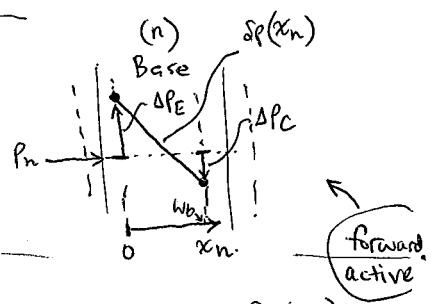 (n)
Base
δp(xn)
ΔPE
ΔPC
Pn
Wb
0
xn.
forward
active